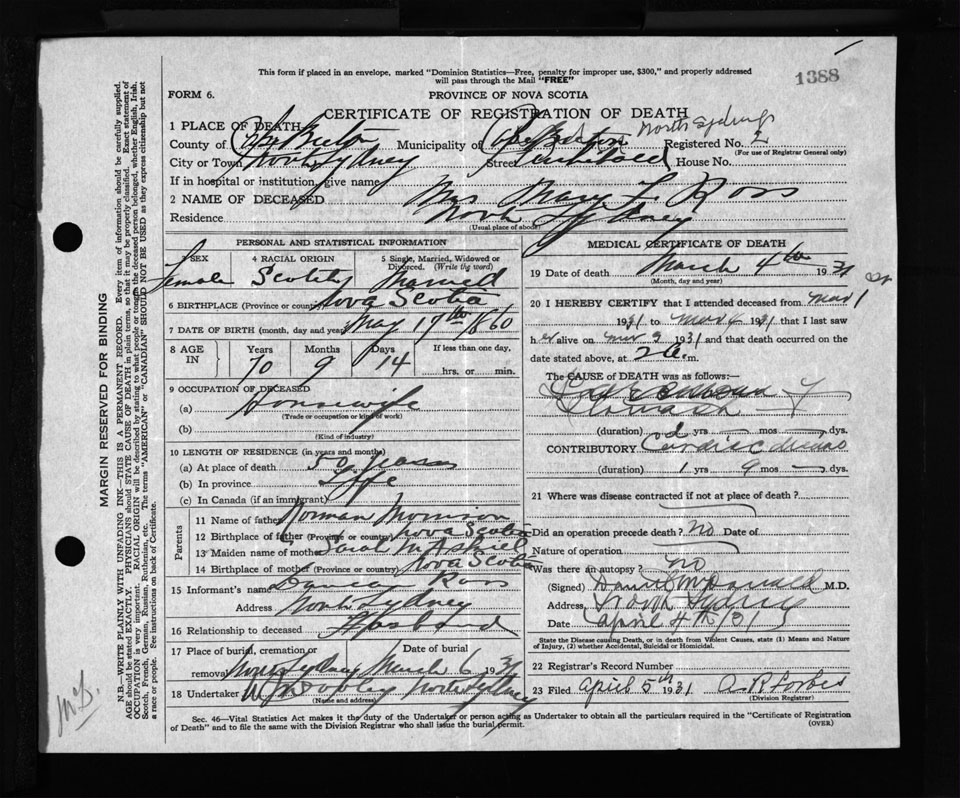 This form if placed in an envelope, marked "Dominion Statistics—Free, penalty for improper use, $300," and properly addressed
will pass through the Mail "FREE"
1388
FORM 6.
PROVINCE OF NOVA SCOTIA
CERTIFICATE OF REGISTRATION OF DEATH
1 PLACE OF DEATH
North Sydney
County of Cape Breton Municipality of Cape Breton Registered No. 2
(For use of Registrar General only)
City or Town North Sydney Street House No.
If in hospital or institution, give name
2 NAME OF DECEASED Mrs Mary L. Ross
Residence North Sydney
(Usual place of abode)
PERSONAL AND STATISTICAL INFORMATION
3 SEX 4 RACIAL ORIGIN 5 Single, Married, Widowed or Divorced. (Write the word)
Female Scotch Married
6 BIRTHPLACE (Province or country) Nova Scotia
7 DATE OF BIRTH (month, day and year) May 17th 1860
8 AGE IN Years Months Days If less than one day,
70 9 14 hrs. or min.
9 OCCUPATION OF DECEASED
(a) Housewife
(Trade or occupation or kind of work)
(b)
(Kind of industry)
10 LENGTH OF RESIDENCE (in years and months)
(a) At place of death 50 years
(b) In province Life
(c) In Canada (if an immigrant)
Parents
11 Name of father Norman Morrison
12 Birthplace of father (Province or country) Nova Scotia
13 Maiden name of mother Sarah McAskill
14 Birthplace of mother (Province or country) Nova Scotia
15 Informant's name Duncan Ross
Address North Sydney
16 Relationship to deceased Husband
17 Place of burial, cremation or removal Date of burial
North Sydney March 6 1931
18 Undertaker North Sydney
(Name and address)
MEDICAL CERTIFICATE OF DEATH
19 Date of death March 4th 1931
(Month, day and year)
20 I HEREBY CERTIFY that I attended deceased from Mar 1
1931 to Mar 4 1931 that I last saw
her alive on Mar 3 1931 and that death occurred on the
date stated above, at 2 a.m.
The CAUSE of DEATH was as follows:
Stomach
(duration) yrs mos dys.
CONTRIBUTORY Cardiac
(duration) 1 yrs 9 mos dys.
21 Where was disease contracted if not at place of death?
Did an operation precede death? no Date of
Nature of operation
Was there an autopsy? no
(Signed) Daniel McDonald M.D.
Address, North Sydney
Date April 4th /31
State the Disease causing Death, or in death from Violent Causes, state (1) Means and Nature
of Injury, (2) whether Accidental, Suicidal or Homicidal.
22 Registrar's Record Number
23 Filed April 5th 1931 A. R. Forbes
(Division Registrar)
Sec. 46—Vital Statistics Act makes it the duty of the Undertaker or person acting as Undertaker to obtain all the particulars required in the "Certificate of Registration
of Death" and to file the same with the Division Registrar who shall issue the burial permit.
(OVER)
MARGIN RESERVED FOR BINDING
N.B.—WRITE PLAINLY WITH UNFADING INK—THIS IS A PERMANENT RECORD. Every item of information should be carefully supplied.
AGE should be stated EXACTLY. PHYSICIANS should STATE CAUSE OF DEATH in plain terms, so that it may be properly classified. Exact statement of
OCCUPATION is very important. RACIAL ORIGIN will be described by stating to what people or tongue the deceased person belonged, whether English, Irish,
Scotch, French, German, Russian, Ruthenian, etc. The terms "AMERICAN" or "CANADIAN" SHOULD NOT BE USED as they express citizenship but not
a race or people. See instructions on back of Certificate.